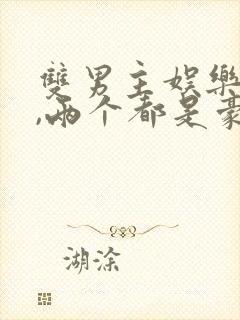 雙男主娛樂
,兩个都是豪
湖涂